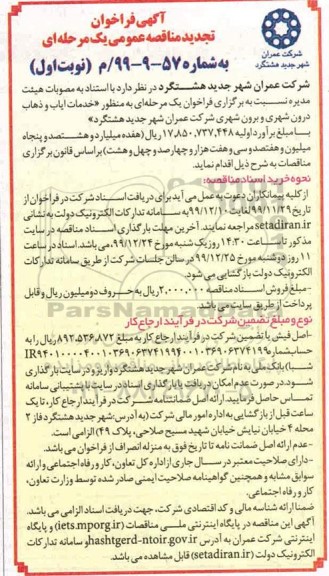 آگهی فراخوان
تجدید مناقصه عمومی یک مرحله‌ای
به شماره ۵۷-۹-۹۹/م (نوبت اول)
شرکت عمران
شهر جدید هشتگرد
شرکت عمران شهر جدید هشتگرد در نظر دارد با استناد به مصوبات هیئت
مدیره نسبت به برگزاری فراخوان یک مرحله‌ای به منظور «خدمات ایاب و ذهاب
درون شهری و برون شهری شرکت عمران شهر جدید هشتگرد»
با مبلغ برآورد اولیه ۱۷,۸۵۰,۷۳۷,۴۴۸ ریال (هفده میلیارد و هشتصد و پنجاه
میلیون و هفتصد و سی و هفت هزار و چهارصد و چهل و هشت) بر اساس قانون برگزاری
مناقصات به شرح ذیل اقدام نماید.
نحوه خرید اسناد مناقصه:
از کلیه پیمانکاران دعوت به عمل می آید برای دریافت اسناد شرکت در فراخوان از
تاریخ ۹۹/۱۱/۲۹ لغایت ۹۹/۱۲/۱۰ به سامانه تدارکات الکترونیک دولت به نشانی
setadiran.ir مراجعه نمایند. آخرین مهلت بارگذاری اسناد مناقصه در سایت
مذکور تا ساعت ۱۴:۳۰ روز یک شنبه مورخ ۹۹/۱۲/۲۴ می باشد. اسناد در ساعت
۱۱ روز دوشنبه مورخ ۹۹/۱۲/۲۵ در سالن جلسات شرکت از طریق سامانه تدارکات
الکترونیک دولت بازگشایی می شود.
-مبلغ فروش اسناد مناقصه ۲,۰۰۰,۰۰۰ ریال به حروف دو میلیون ریال و قابل
پرداخت از طریق سایت می باشد.
نوع و مبلغ تضمین شرکت در فرآیند ارجاع کار
-اصل فیش یا تضمین شرکت در فرآیند ارجاع کار به مبلغ ۸۹۲,۵۳۶,۸۷۲ ریال را به
بانک ملی به نام شرکت عمران شهر جدید هشتگرد واریز و در سایت بارگذاری
شود. در صورت عدم امکان دریافت یا بارگذاری اسناد در سایت با پشتیبانی سامانه
تماس حاصل فرمایید. ارائه اصل ضمانتنامه شرکت در فرآیند ارجاع کار، تا یک
ساعت قبل از بازگشایی به اداره امور مالی شرکت (به آدرس: شهر جدید هشتگرد فاز ۲
محله ۴ خیابان نیایش خیابان شهید مسیح صلاحی، پلاک ۴۹) الزامی است.
-عدم ارائه اصل ضمانت نامه تا تاریخ فوق به منزله انصراف از فراخوان می باشد.
-دارای صلاحیت معتبر در سال جاری از اداره کل تعاون، کار و رفاه اجتماعی و ارائه
سوابق مشابه و همچنین گواهینامه صلاحیت ایمنی صادر شده توسط وزارت تعاون،
کار و رفاه اجتماعی.
ضمنا ارائه شناسه ملی و کد اقتصادی شرکت، جهت دریافت اسناد الزامی می باشد.
آگهی این مناقصه در پایگاه اینترنتی ملی مناقصات (iets.mporg.ir) و پایگاه
اینترنتی شرکت عمران به آدرس hashtgerd-ntoir.gov.ir و سامانه تدارکات
الکترونیک دولت (setadiran.ir) قابل مشاهده می باشد.